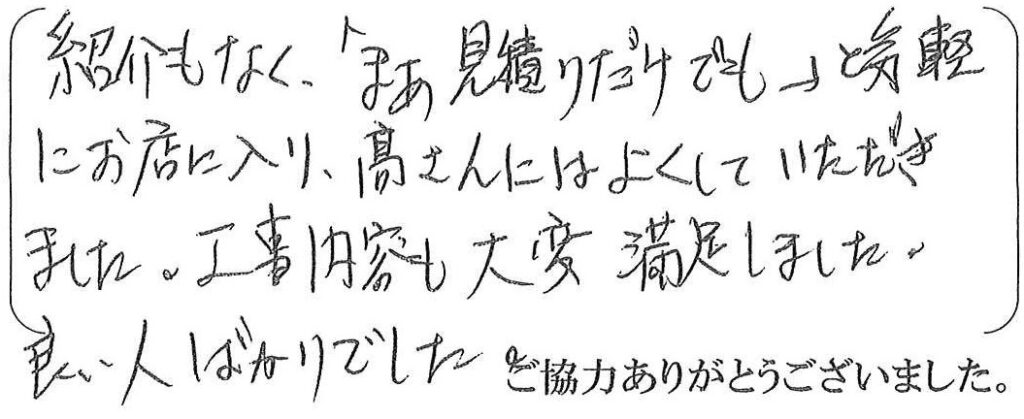 紹介もなく、「まあ見積りだけでも」と気軽
にお店に入り、高さんにはよくしていただき
ました。工事内容も大変満足しました。
良い人ばかりでした。
ご協力ありがとうございました。